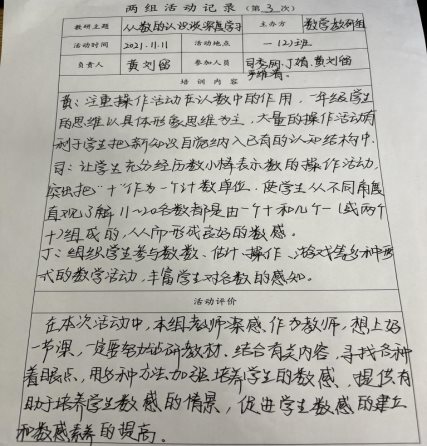 两 组 活 动 记 录 （第 3 次）
教研主题 从数的认识谈深度学习 主办方 数学教研组
活动时间 2021.11.11 活动地点 一（2）班
负责人 黄刘留 参加人员 司 丁婧、黄刘留
培 训 内 容
黄：注重操作活动在认数中的作用，一年级学生
的思维以具体形象思维为主，大量的操作活动有
利于学生把新知识自觉纳入已有的认知结构中.
司：让学生充分经历数小棒表示数的操作活动，
突出把"十"作为一个计数单位，使学生从不同角度
直观了解11～20各数都是由一个十和几个一（或两个
十）组成的，从而形成良好的数感。
丁：组织学生参与数数、估计、操作、游戏等多种形
式的数学活动，丰富学生对各数的感知。
活动评价
在本次活动中，本组老师深感，作为教师，想上好
一节课，一定要努力钻研教材，结合有关内容，寻找各种
着眼点，用多种方法加强培养学生的数感，提供有
助于培养学生数感的情景，促进学生数感的建立
和数感素养的提高.